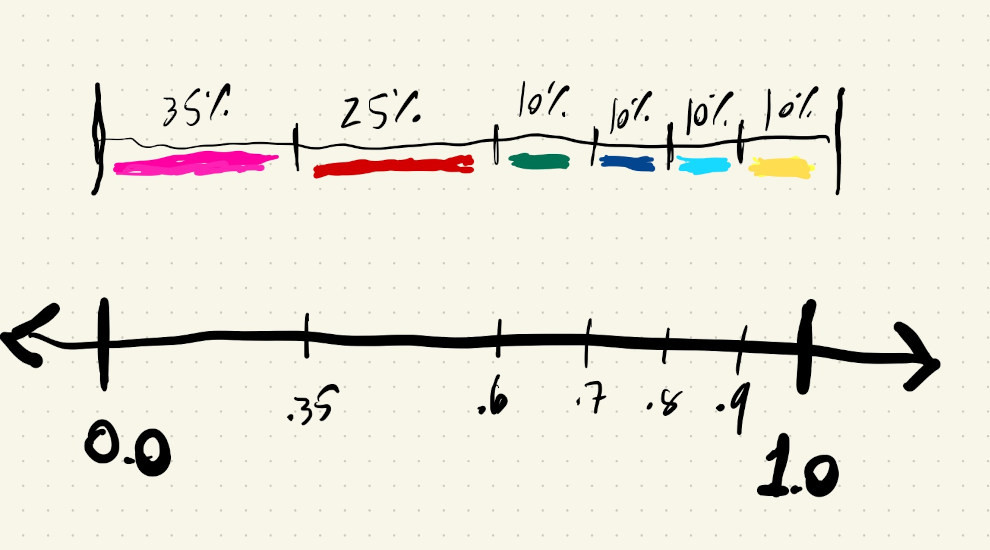 35% 25% 10% 10% 10% 10%
.35 .6 .7 .8 .9
0.0 1.0